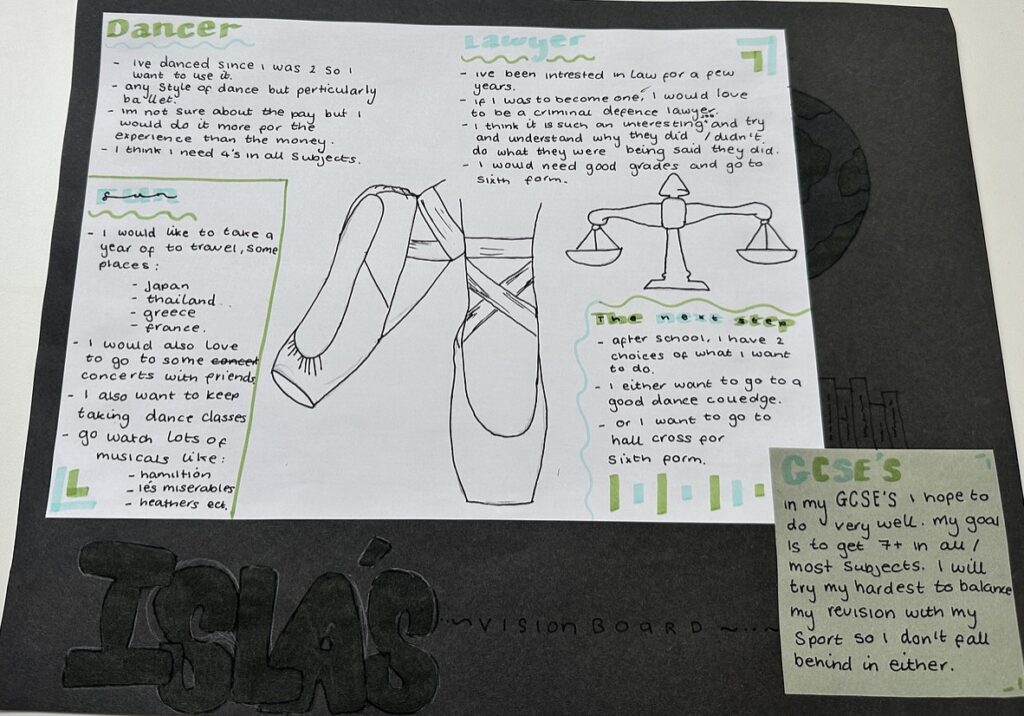 Dancer
- ive danced since i was 2 so i
want to use it.
- any style of dance but perticularly
ballet.
- im not sure about the pay but i
would do it more for the
experience than the money.
- I think i need 4's in all subjects.
Lawyer
- ive been intrested in law for a few
years.
- if i was to become one, i would love
to be a criminal defence lawyer.
- I think it is such an interesting and try
and understand why they did / didn't
do what they were being said they did.
- I would need good grades and go to
sixth form.
Fun
- I would like to take a
year of to travel, some
places:
- Japan
- thailand..
- greece
- france.
- I would also love
to go to some concert
concerts with friends
- I also want to keep
taking dance classes
- go watch lots of
musicals like:
- hamiltion
- lés miserables
- heathers ect.
The next step
- after school, I have 2
choices of what I want
to do.
- I either want to go to a
good dance colledge.
- or I want to go to
hall cross for
sixth form.
GCSE'S
in my GCSE'S I hope to
do very well. my goal
is to get 7+ in all /
most subjects. I will
try my hardest to balance
my revision with my
Sport so I don't fall
behind in either.
ISLA'S
~VISION BOARD~